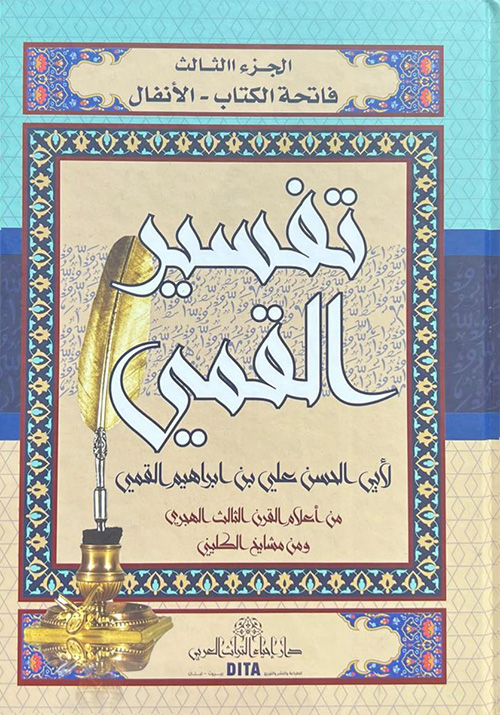 الجزء االثالث
فاتحة الكتاب - الأنفال
تفسير
القمي
لأبي الحسن علي بن ابراهيم القمي
من أعلام القرن الثالث الهجري
ومن مشايخ الكليني
دار إحياء التراث العربي
للطباعة والنشر والتوزيع DITA بيروت - لبنان